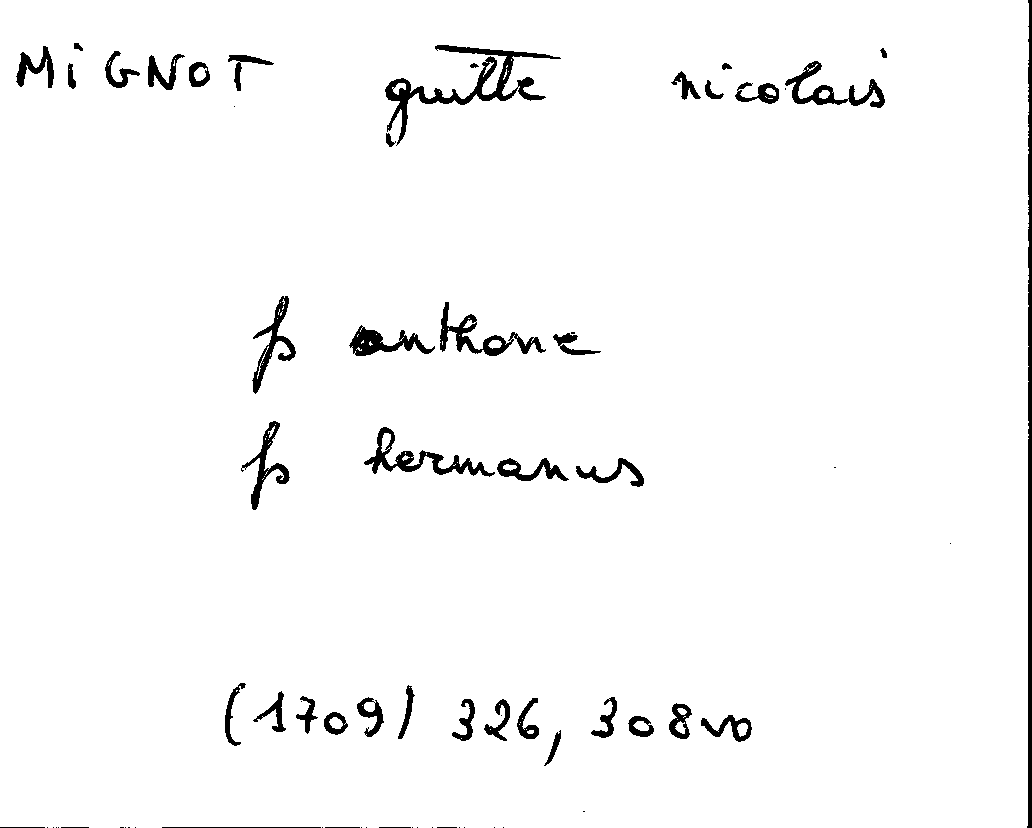 MIGNOT guille nicolais
fs anthone
fs hermanus
(1709) 326, 308vo